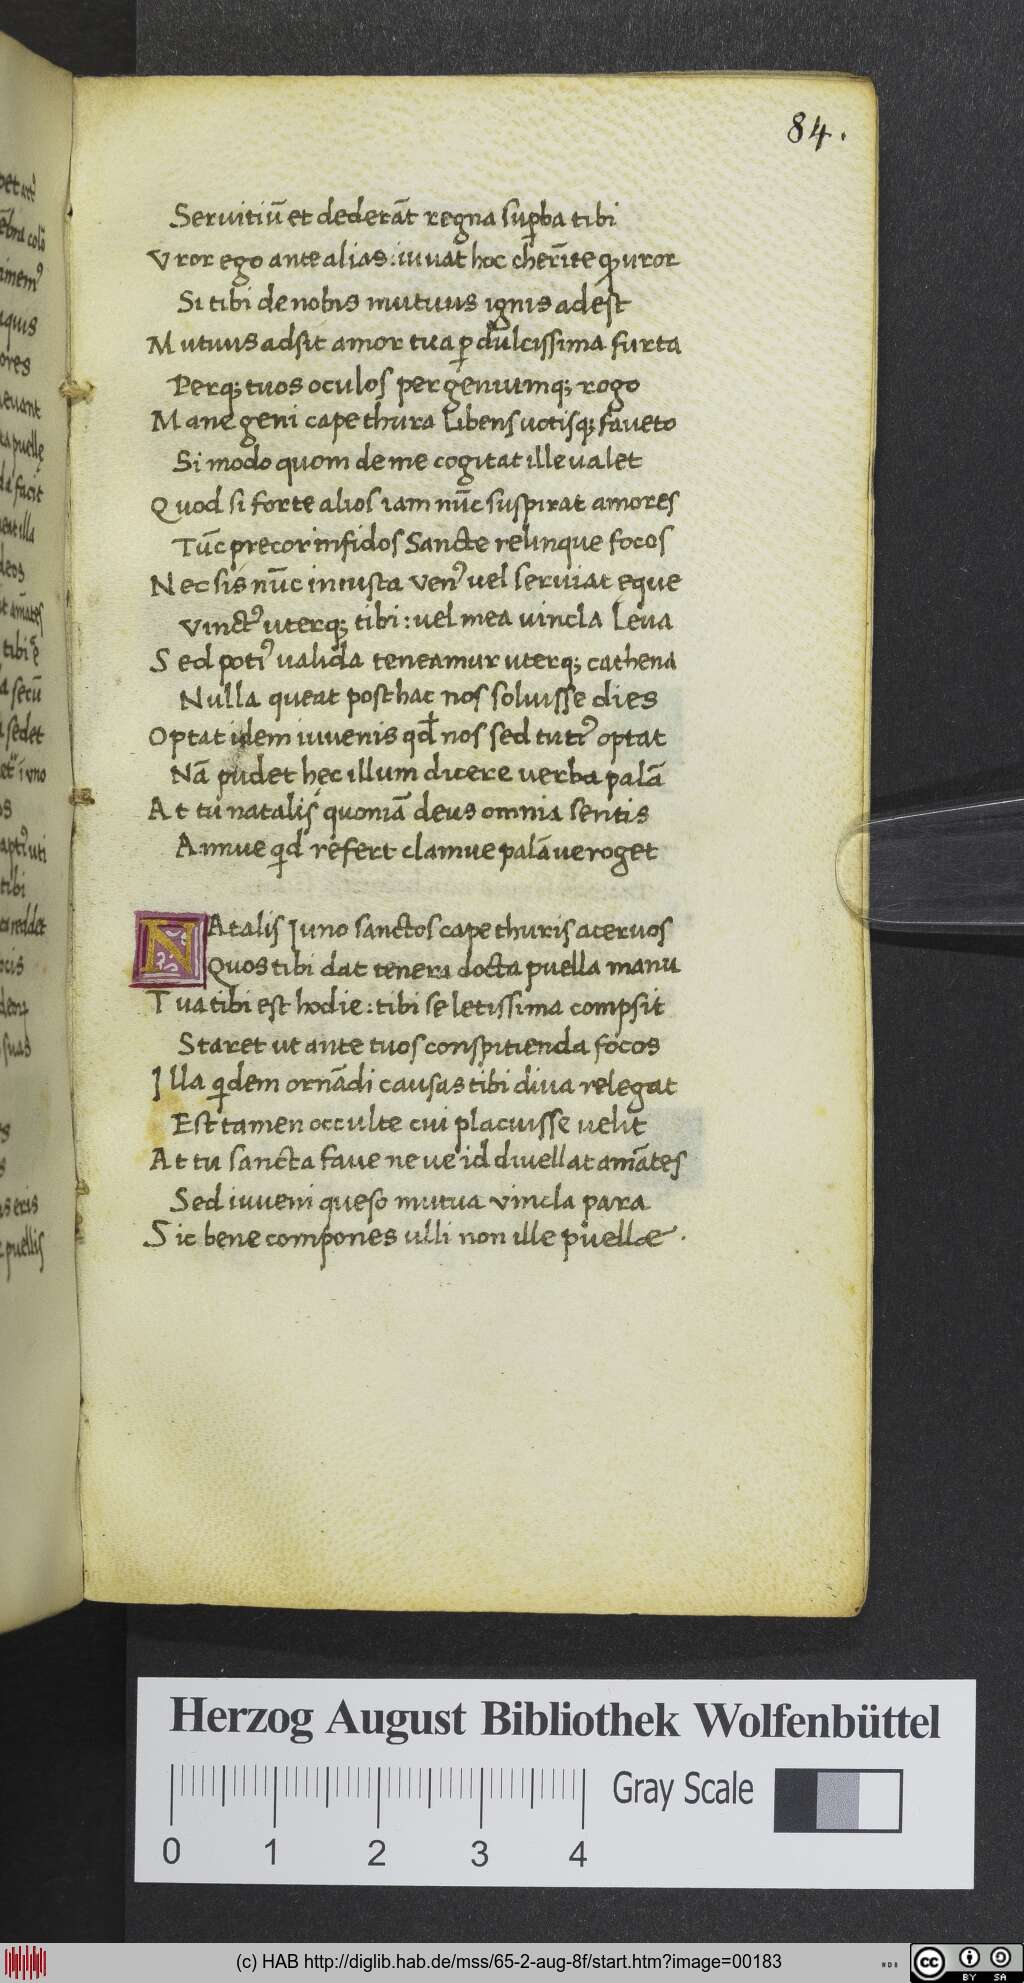 84.
Seruitiū et dederāt regna suꝑba tibi
Vror ego ante alias: iuuat hoc cherīte qđ uror
Si tibi de nobis mutuus ignis adest
Mutuus adsit amor tua ꝑ dulcissima furta
Perqꝫ tuos oculos per geniumqꝫ rogo
Mane geni cape thura libens uotisqꝫ faueto
Si modo quom de me cogitat ille ualet
Quod si forte alios iam nūc suspirat amores
Tūc precor infidos Sancte relinque focos
Nec sis nūc iniusta venꝰ uel seruiat eque
vinctꝰ uterqꝫ tibi: uel mea uincla leua
Sed potiꝰ ualida teneamur uterqꝫ cathena
Nulla queat posthac nos soluisse dies
Optat idem iuuenis qđ nos sed tutiꝰ optat
Nā pudet hęc illum dicere uerba palā
At tu natalis quoniā deus omnia sentis
Annue qid refert clamue palā ue roget
NAtalis Juno sanctos cape thuris aceruos
Quos tibi dat tenera docta puella manu
Tua tibi est hodie: tibi se letissima compsit
Staret ut ante tuos conspitienda focos
Illa qidem ornādi causas tibi diua relegat
Est tamen occulte cui placuisse uelit
At tu sancta faue neue id diuellat amātes
Sed iuueni queso mutua vincla para
Sic bene compones ulli non ille puellae.
Herzog August Bibliothek Wolfenbüttel
Gray Scale
0 1 2 3 4
(c) HAB http://diglib.hab.de/mss/65-2-aug-8f/start.htm?image=00183
cc BY SA